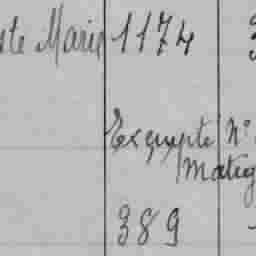 ste Marie 1174
Exempté N°
Matig
389